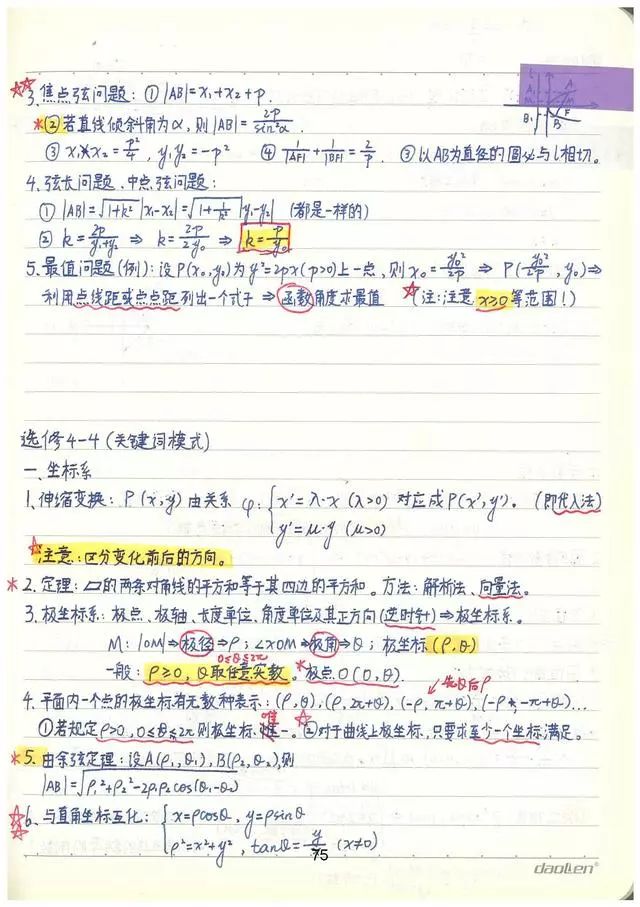 3. 焦点弦问题：① |AB|=x₁+x₂+p.
②若直线倾斜角为α，则|AB|=2p/sin²α.
③ x₁x₂=p²/4，y₁y₂=-p² ④ 1/|AF|+1/|BF|=2/p. ⑤以AB为直径的圆必与l相切。
4. 弦长问题、中点弦问题：
① |AB|=√(1+k²)|x₁-x₂|=√(1+1/k²)|y₁-y₂| (都是一样的)
② k=2p/(y₁+y₂) ⇒ k=2p/2y₀ ⇒ k=p/y₀
5. 最值问题(例)：设P(x₀,y₀)为y²=2px(p>0)上一点，则x₀=y₀²/2p ⇒ P(y₀²/2p, y₀)⇒
利用点线距或点点距列出一个式子 ⇒ 函数角度求最值 (注:注意x≥0等范围!)
l
A₁ A
M
F
B₁ B
选修4-4 (关键词模式)
一、坐标系
1. 伸缩变换：P(x,y)由关系 φ:{x'=λ·x (λ>0) 对应成P(x',y')。 (即代入法)
y'=μ·y (μ>0)
注意：区分变化前后的方向。
2. 定理：▱的两条对角线的平方和等于其四边的平方和。方法：解析法、向量法。
3. 极坐标系：极点、极轴、长度单位、角度单位及其正方向(逆时针)⇒极坐标系。
M: |OM|⇒极径⇒ρ；∠xOM⇒极角⇒θ；极坐标(ρ,θ)
0≤θ≤2π
一般：ρ≥0，θ取任意实数。*极点O(0,θ).
先θ后ρ
4. 平面内一个点的极坐标有无数种表示：(ρ,θ),(ρ,2π+θ),(-ρ,π+θ),(-ρ,-π+θ)...
①若规定ρ>0,0≤θ≤2π则极坐标唯一。②对于曲线上极坐标,只要求至少一个坐标满足。
5. 由余弦定理：设A(ρ₁,θ₁),B(ρ₂,θ₂),则
|AB|=√(ρ₁²+ρ₂²-2ρ₁ρ₂cos(θ₁-θ₂))
6. 与直角坐标互化：{x=ρcosθ，y=ρsinθ
ρ²=x²+y²，tanθ=y/x (x≠0)
75
daolen®